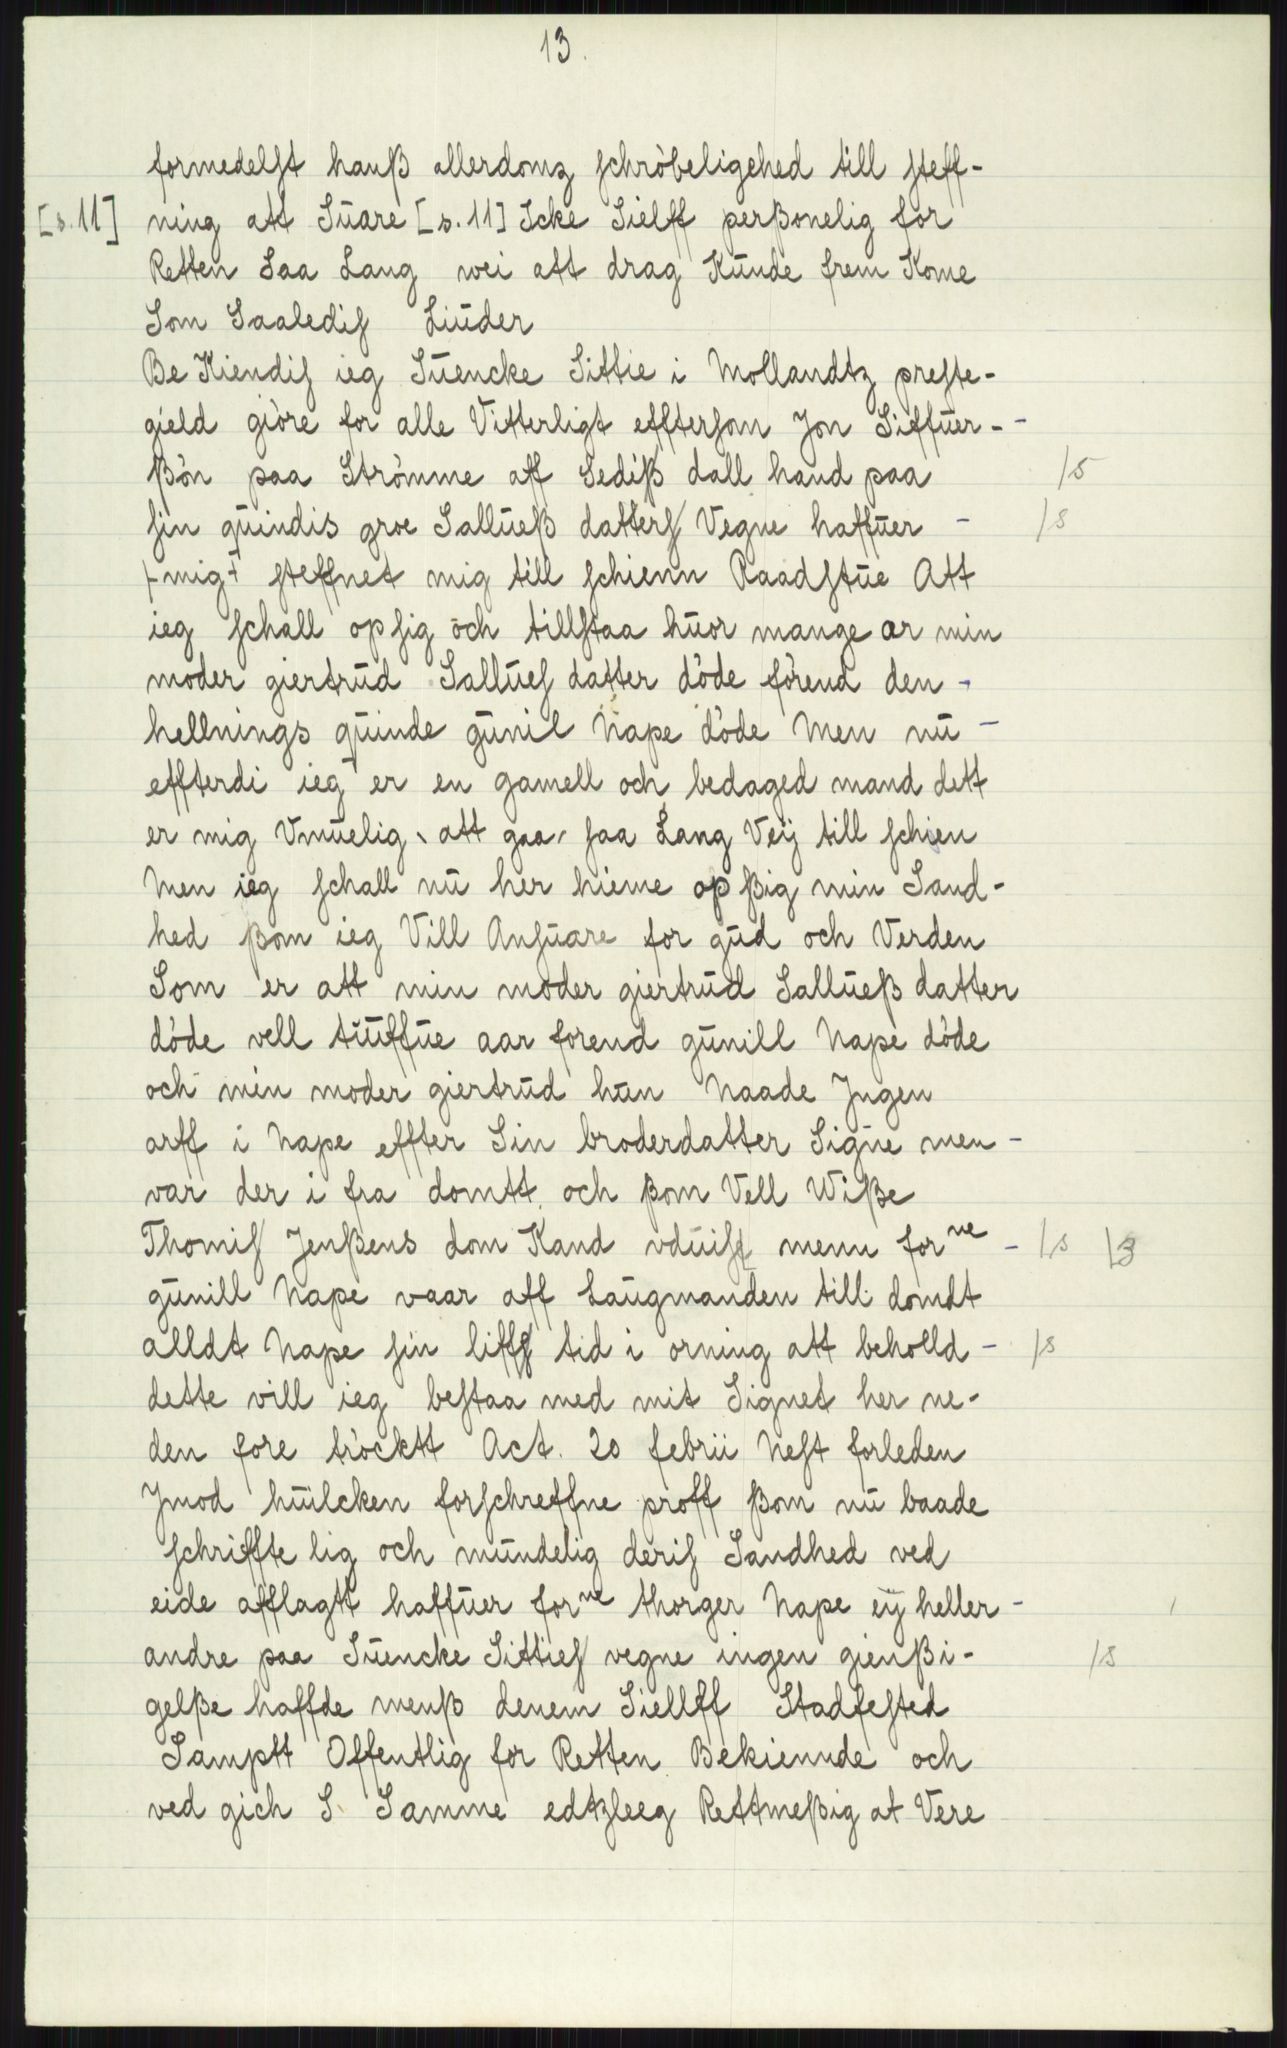 13.
formedelst hanß allerdomz schröbeligehed till steff-
[s. 11] ning att Suare [s. 11] Icke Sielff perßonelig for
Retten Saa Lang wei att drag Kunde frem Kome
Som Saaledis Liuder
Be Kiendis ieg Suencke Sittie i Mollandtz preste-
gield giöre for alle Vitterligt efftersom Jon Siffuer-
ßön paa Strömme aff Sediß dall hand paa
sin quindis groe Sallueß datters Vegne haffuer
mig steffnet mig till schienn Raadstue Att
ieg schall op sig och tillstaa huor mange ar min
moder giertrud Sallues datter döde förend den
hellnings quinde gunil Nape döde Men nu
effterdi ieg er en gamell och bedaged mand dett
er mig Vmuelig att gaa saa Lang Veÿ till schien
Men ieg schall nu her hieme op ßig min Sand-
hed ßom ieg Vill Ansuare for gud och Verden
Som er att min moder giertrud Sallueß datter
döde vell tiuffue aar forend gunill Nape döde
och min moder giertrud hun Naade Jngen
arff i Nape effter Sin broderdatter Signe men
var der i fra domtt och ßom Vell Wiße
Thomis Jenßens dom Kand vduist menn forne
gunill Nape vaar aff Laugmanden till domdt
alldt Nape sin liffs tid i orning att beholld
dette vill ieg bestaa med mit Signet her ne-
den fore tröcktt Act. 20 febrii Nest forleden
Jmod huilcken forschreffne proff ßom nu baade
schriffte lig och mundelig deris Sandhed ved
eide afflagtt haffuer forne thorger Nape eÿ heller
andre paa Suencke Sitties vegne ingen gienßi-
gelße haffde menß denem Siellff Stadfested
Samptt Offentlig for Retten Bekiennde och
ved gich S. Samme edtzleeg Rettmeßig at Vere